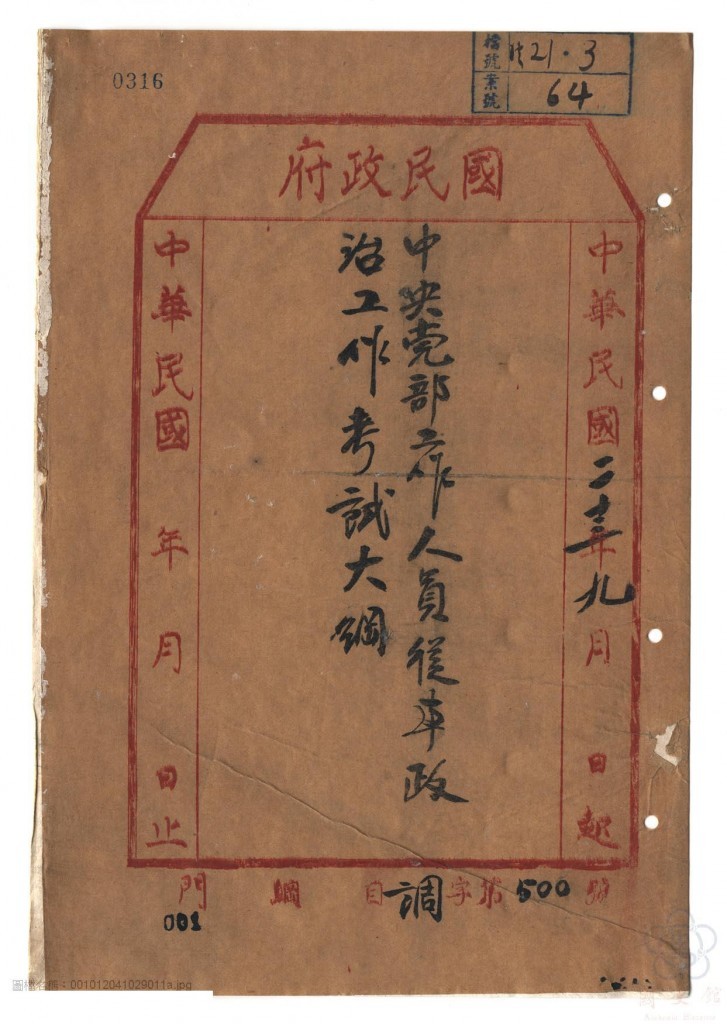 0316
檔號 21.3
案號 64
國民政府
中華民國二十三年九月 日起
中央党部工作人員從事政
治工作考試大綱
中華民國 年 月 日止
調字第500號
門 綱 目
001
圖檔名稱：001012041029011a.jpg
國史館